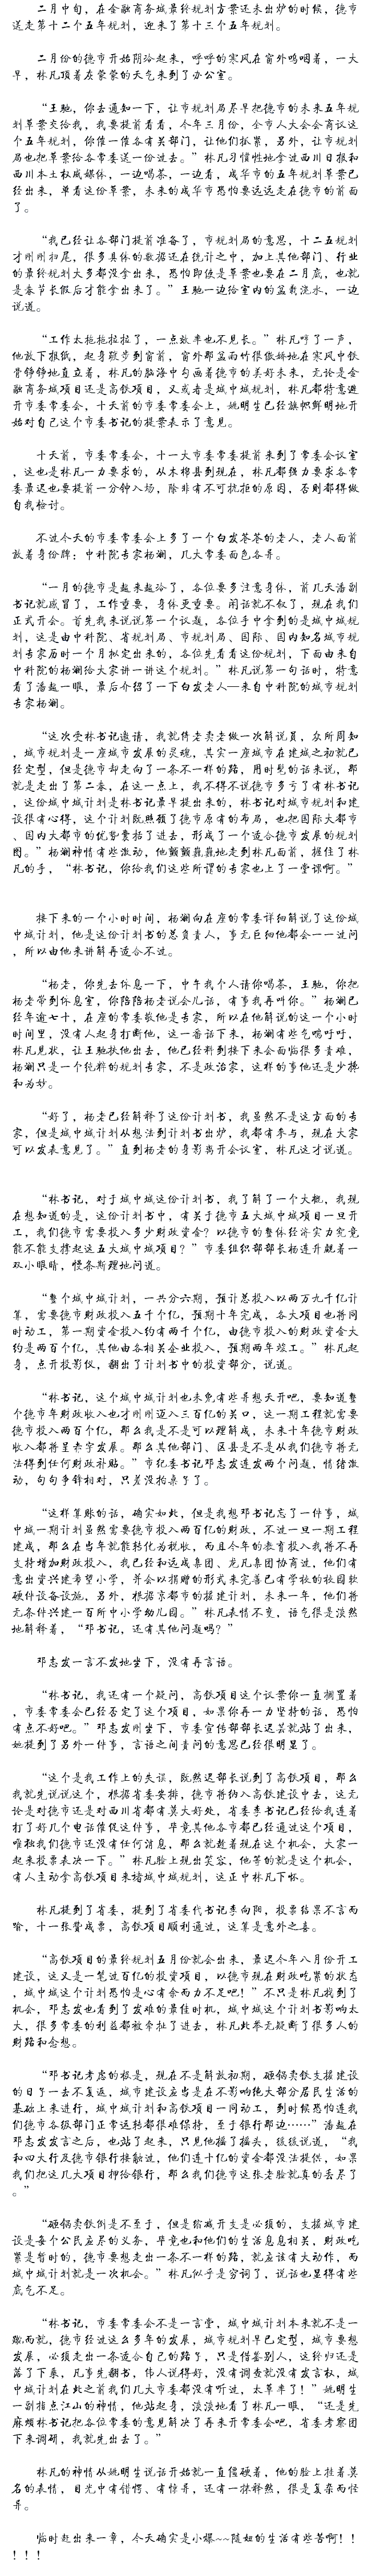 二月中旬，在金融商务城最终规划方案还未出炉的时候，德市
送走第十二个五年规划，迎来了第十三个五年规划。
二月份的德市开始阴冷起来，呼呼的寒风在窗外呜咽着，一大
早，林凡顶着灰蒙蒙的天气来到了办公室。
“王驰，你去通知一下，让市规划局尽早把德市的未来五年规
划草案交给我，我要提前看看，今年三月份，全市人大会会商议这
个五年规划，你催一催各有关部门，让他们抓紧，另外，让市规划
局也把草案给各常委送一份过去。”林凡习惯性地拿过西川日报和
西川本土权威媒体，一边喝茶，一边看，成华市的五年规划草案已
经出来，单看这份草案，未来的成华市恐怕要远远走在德市的前面
了。
“我已经让各部门提前准备了，市规划局的意思，十二五规划
才刚刚扫尾，很多具体的数据还在统计之中，加上其他部门、行业
的最终规划大多都没拿出来，恐怕即使是草案也要在二月底，也就
是春节长假后才能拿出来了。”王驰一边给室内的盆栽浇水，一边
说道。
“工作太拖拖拉拉了，一点效率也不见长。”林凡哼了一声，
他放下报纸，起身散步到窗前，窗外那盆雨竹很傲娇地在寒风中铁
骨铮铮地直立着，林凡的脑海中勾画着德市的美好未来，无论是金
融商务城项目还是高铁项目，又或者是城中城规划，林凡都特意避
开市委常委会，十天前的市委常委会上，姚明生已经旗帜鲜明地开
始对自己这个市委书记的提案表示了意见。
十天前，市委常委会，十一大市委常委提前来到了常委会议室
，这也是林凡一力要求的，从木棉县到现在，林凡都强力要求各常
委最迟也要提前一分钟入场，除非有不可抗拒的原因，否则都得做
自我检讨。
不过今天的市委常委会上多了一个白发苍苍的老人，老人面前
放着身份牌：中科院专家杨澜，几大常委面色各异。
“一月的德市是越来越冷了，各位要多注意身体，前几天潘副
书记就感冒了，工作重要，身体更重要。闲话就不叙了，现在我们
正式开会。首先我来说说第一个议题，各位手中拿到的是城中城规
划，这是由中科院、省规划局、市规划局、国际、国内知名城市规
划专家历时一个月拟定出来的，各位先看看这份规划，下面由来自
中科院的杨澜给大家讲一讲这个规划。”林凡说第一句话时，特意
看了潘越一眼，最后介绍了一下白发老人—来自中科院的城市规划
专家杨澜。
“这次受林书记邀请，我就倚老卖老做一次解说员，众所周知
，城市规划是一座城市发展的灵魂，其实一座城市在建城之初就已
经定型，但是德市却走向了一条不一样的路，用时髦的话来说，那
就是走出了第二春，在这一点上，我不得不说德市多亏了有林书记
，这份城中城计划是林书记最早提出来的，林书记对城市规划和建
设很有心得，这个计划既照顾了德市原有的布局，也把国际大都市
、国内大都市的优势囊括了进去，形成了一个适合德市发展的规划
图。”杨澜神情有些激动，他颤颤巍巍地走到林凡面前，握住了林
凡的手，“林书记，你给我们这些所谓的专家也上了一堂课啊。”
接下来的一个小时时间，杨澜向在座的常委详细解说了这份城
中城计划，他是这份计划书的总负责人，事无巨细他都会一一过问
，所以由他来讲解再适合不过。
“杨老，你先去休息一下，中午我个人请你喝茶，王驰，你把
杨老带到休息室，你陪陪杨老说会儿话，有事我再叫你。”杨澜已
经年逾七十，在座的常委敬他是专家，所以在他解说的这一个小时
时间里，没有人起身打断他，这一番话下来，杨澜有些气喘吁吁，
林凡见状，让王驰扶他出去，他已经料到接下来会面临很多责难，
杨澜只是一个纯粹的规划专家，不是政治家，这样的事他还是少掺
和为妙。
“好了，杨老已经解释了这份计划书，我虽然不是这方面的专
家，但是城中城计划从想法到计划书出炉，我都有参与，现在大家
可以发表意见了。”直到杨老的身影离开会议室，林凡这才说道。
“林书记，对于城中城这份计划书，我了解了一个大概，我现
在想知道的是，这份计划书中，有关于德市五大城中城项目一旦开
工，我们德市需要投入多少财政资金？以德市的整体经济实力究竟
能不能支撑起这五大城中城项目？”市委组织部部长杨连升觑着一
双小眼睛，慢条斯理地问道。
“整个城中城计划，一共分六期，预计总投入以两万九千亿计
算，需要德市财政投入五千个亿，预期十年完成，各大项目也将同
时动工，第一期资金投入约有两千个亿，由德市投入的财政资金大
约是两百个亿，其他由各相关企业投入，预期两年竣工。”林凡起
身，点开投影仪，翻出了计划书中的投资部分，说道。
“林书记，这个城中城计划也未免有些异想天开吧，要知道整
个德市年财政收入也才刚刚迈入三百亿的关口，这一期工程就需要
德市投入两百个亿，那么我是不是可以理解成，未来十年德市财政
收入都将呈赤字发展。那么其他部门、区县是不是从我们德市将无
法得到任何财政补贴。”市纪委书记邓志发连发两个问题，情绪激
动，句句争锋相对，只差没拍桌子了。
“这样算账的话，确实如此，但是我想邓书记忘了一件事，城
中城一期计划虽然需要德市投入两百亿的财政，不过一旦一期工程
建成，那么在当年就能转化为税收，而且今年的教育投入我将不再
支持增加财政投入，我已经和远成集团、龙凡集团协商过，他们有
意出资兴建希望小学，并会以捐赠的形式来完善已有学校的校园软
硬件设备设施，另外，根据京都市的援建计划，未来一年，他们将
无条件兴建一百所中小学幼儿园。”林凡表情不变，语气很是淡然
地解释着，“邓书记，还有其他问题吗？”
邓志发一言不发地坐下，没有再言语。
“林书记，我还有一个疑问，高铁项目这个议案你一直搁置着
，市委常委会已经否定了这个项目，如果你再一力坚持的话，恐怕
有点不好吧。”邓志发刚坐下，市委宣传部部长迟芸就站了出来，
她提到了另外一件事，言语之间责问的意思已经很明显了。
“这个是我工作上的失误，既然迟部长说到了高铁项目，那么
我就先说说这个，根据省委安排，德市将纳入高铁建设中去，这无
论是对德市还是对西川省都有莫大好处，省委李书记已经给我连着
打了好几个电话催促这件事，毕竟其他各市都已经通过这个项目，
唯独我们德市还没有任何消息，那么就趁着现在这个机会，大家一
起来投票表决一下。”林凡脸上现出笑容，他等的就是这个机会，
有人主动拿高铁项目来堵城中城规划，这正中林凡下怀。
林凡提到了省委，提到了省委代书记李向阳，投票结果不言而
喻，十一张赞成票，高铁项目顺利通过，这算是意外之喜。
“高铁项目的最终规划五月份就会出来，最迟今年八月份开工
建设，这又是一笔过百亿的投资项目，以德市现在财政吃紧的状态
，城中城这个计划恐怕是心有余而力不足吧！”不只是林凡找到了
机会，邓志发也看到了发难的最佳时机，城中城这个计划书影响太
大，很多常委的利益都被牵扯了进去，林凡此举无疑断了很多人的
财路和念想。
“邓书记考虑的极是，现在不是解放初期，砸锅卖铁支援建设
的日子一去不复返，城市建设应当是在不影响绝大部分居民生活的
基础上来进行，城中城计划和高铁项目一同动工，到时候恐怕连我
们德市各级部门正常运转都很难保持，至于银行那边……”潘越在
邓志发发言之后，也站了起来，只见他摇了摇头，继续说道，“我
和四大行及德市银行接触过，他们连十亿的资金都没法提供，如果
我们把这几大项目押给银行，那么我们德市这张老脸就真的丢尽了
。”
“砸锅卖铁倒是不至于，但是缩减开支是必须的，支援城市建
设是每个公民应尽的义务，毕竟也和他们的生活息息相关，财政吃
紧是暂时的，德市要想走出一条不一样的路，就应该有大动作，而
城中城计划就是一次机会。”林凡似乎是穷词了，说话也显得有些
底气不足。
“林书记，市委常委会不是一言堂，城中城计划本来就不是一
蹴而就，德市经过这么多年的发展，城市规划早已定型，城市要想
发展，必须走出一条适合自己的路子，只是借鉴别人，这终归还是
落了下乘，凡事先翻书，伟人说得好，没有调查就没有发言权，城
中城计划在此之前我们几大市委都没有听过，太草率了！”姚明生
一副指点江山的神情，他站起身，淡淡地看了林凡一眼，“还是先
麻烦林书记把各位常委的意见解决了再来开常委会吧，省委考察团
下来调研，我就先出去了。”
林凡的神情从姚明生说话开始就一直僵硬着，他的脸上挂着莫
名的表情，目光中有错愕、有惊异，还有一抹释然，很是复杂而怪
异。
临时赶出来一章，今天确实是小爆~~随姐的生活有些苦啊！！
！！！！